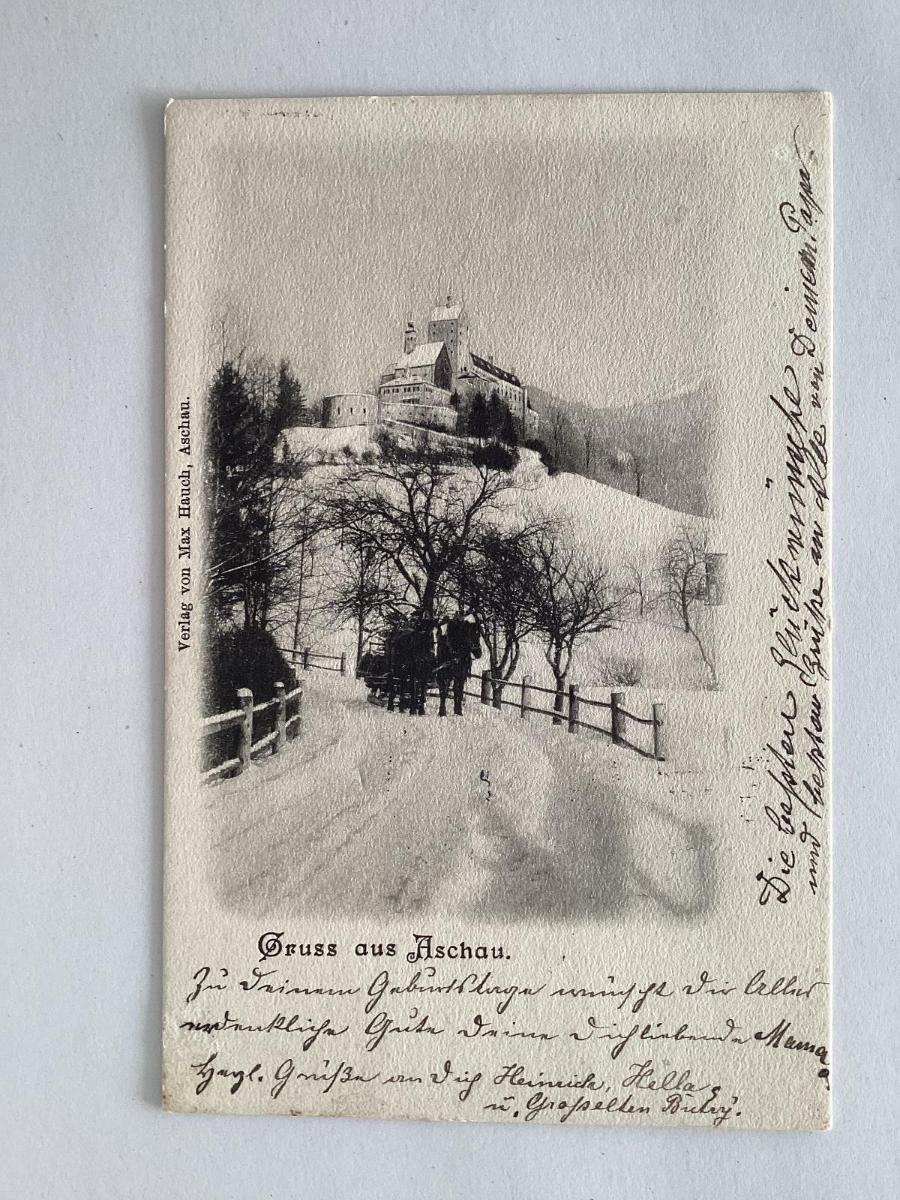 Verlag von Max Hauch, Aschau.
Gruss aus Aschau.
Zu Deinem Geburtstage wünscht Dir Alles
erdenkliche Gute Deine Dichliebende Mama
Herzl. Grüße an Dich Heinrich, Hella
u. Großeltern
Die besten Glückwünsche
und besten Grüße an Alle von Deinem Papa.